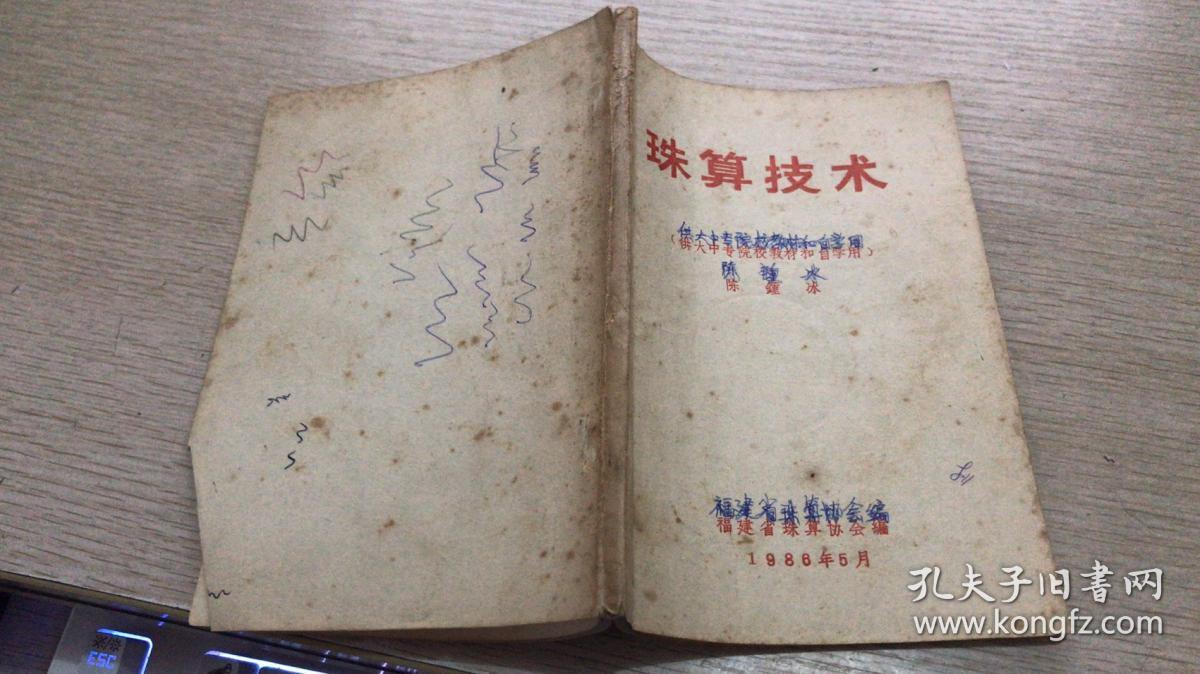 珠算技术
供大中专院校教材和自学用
(供大中专院校教材和自学用)
陈 冰
陈 冰
福建省珠算协会编
福建省珠算协会编
1986年5月
ESC
孔夫子旧书网
www.kongfz.com